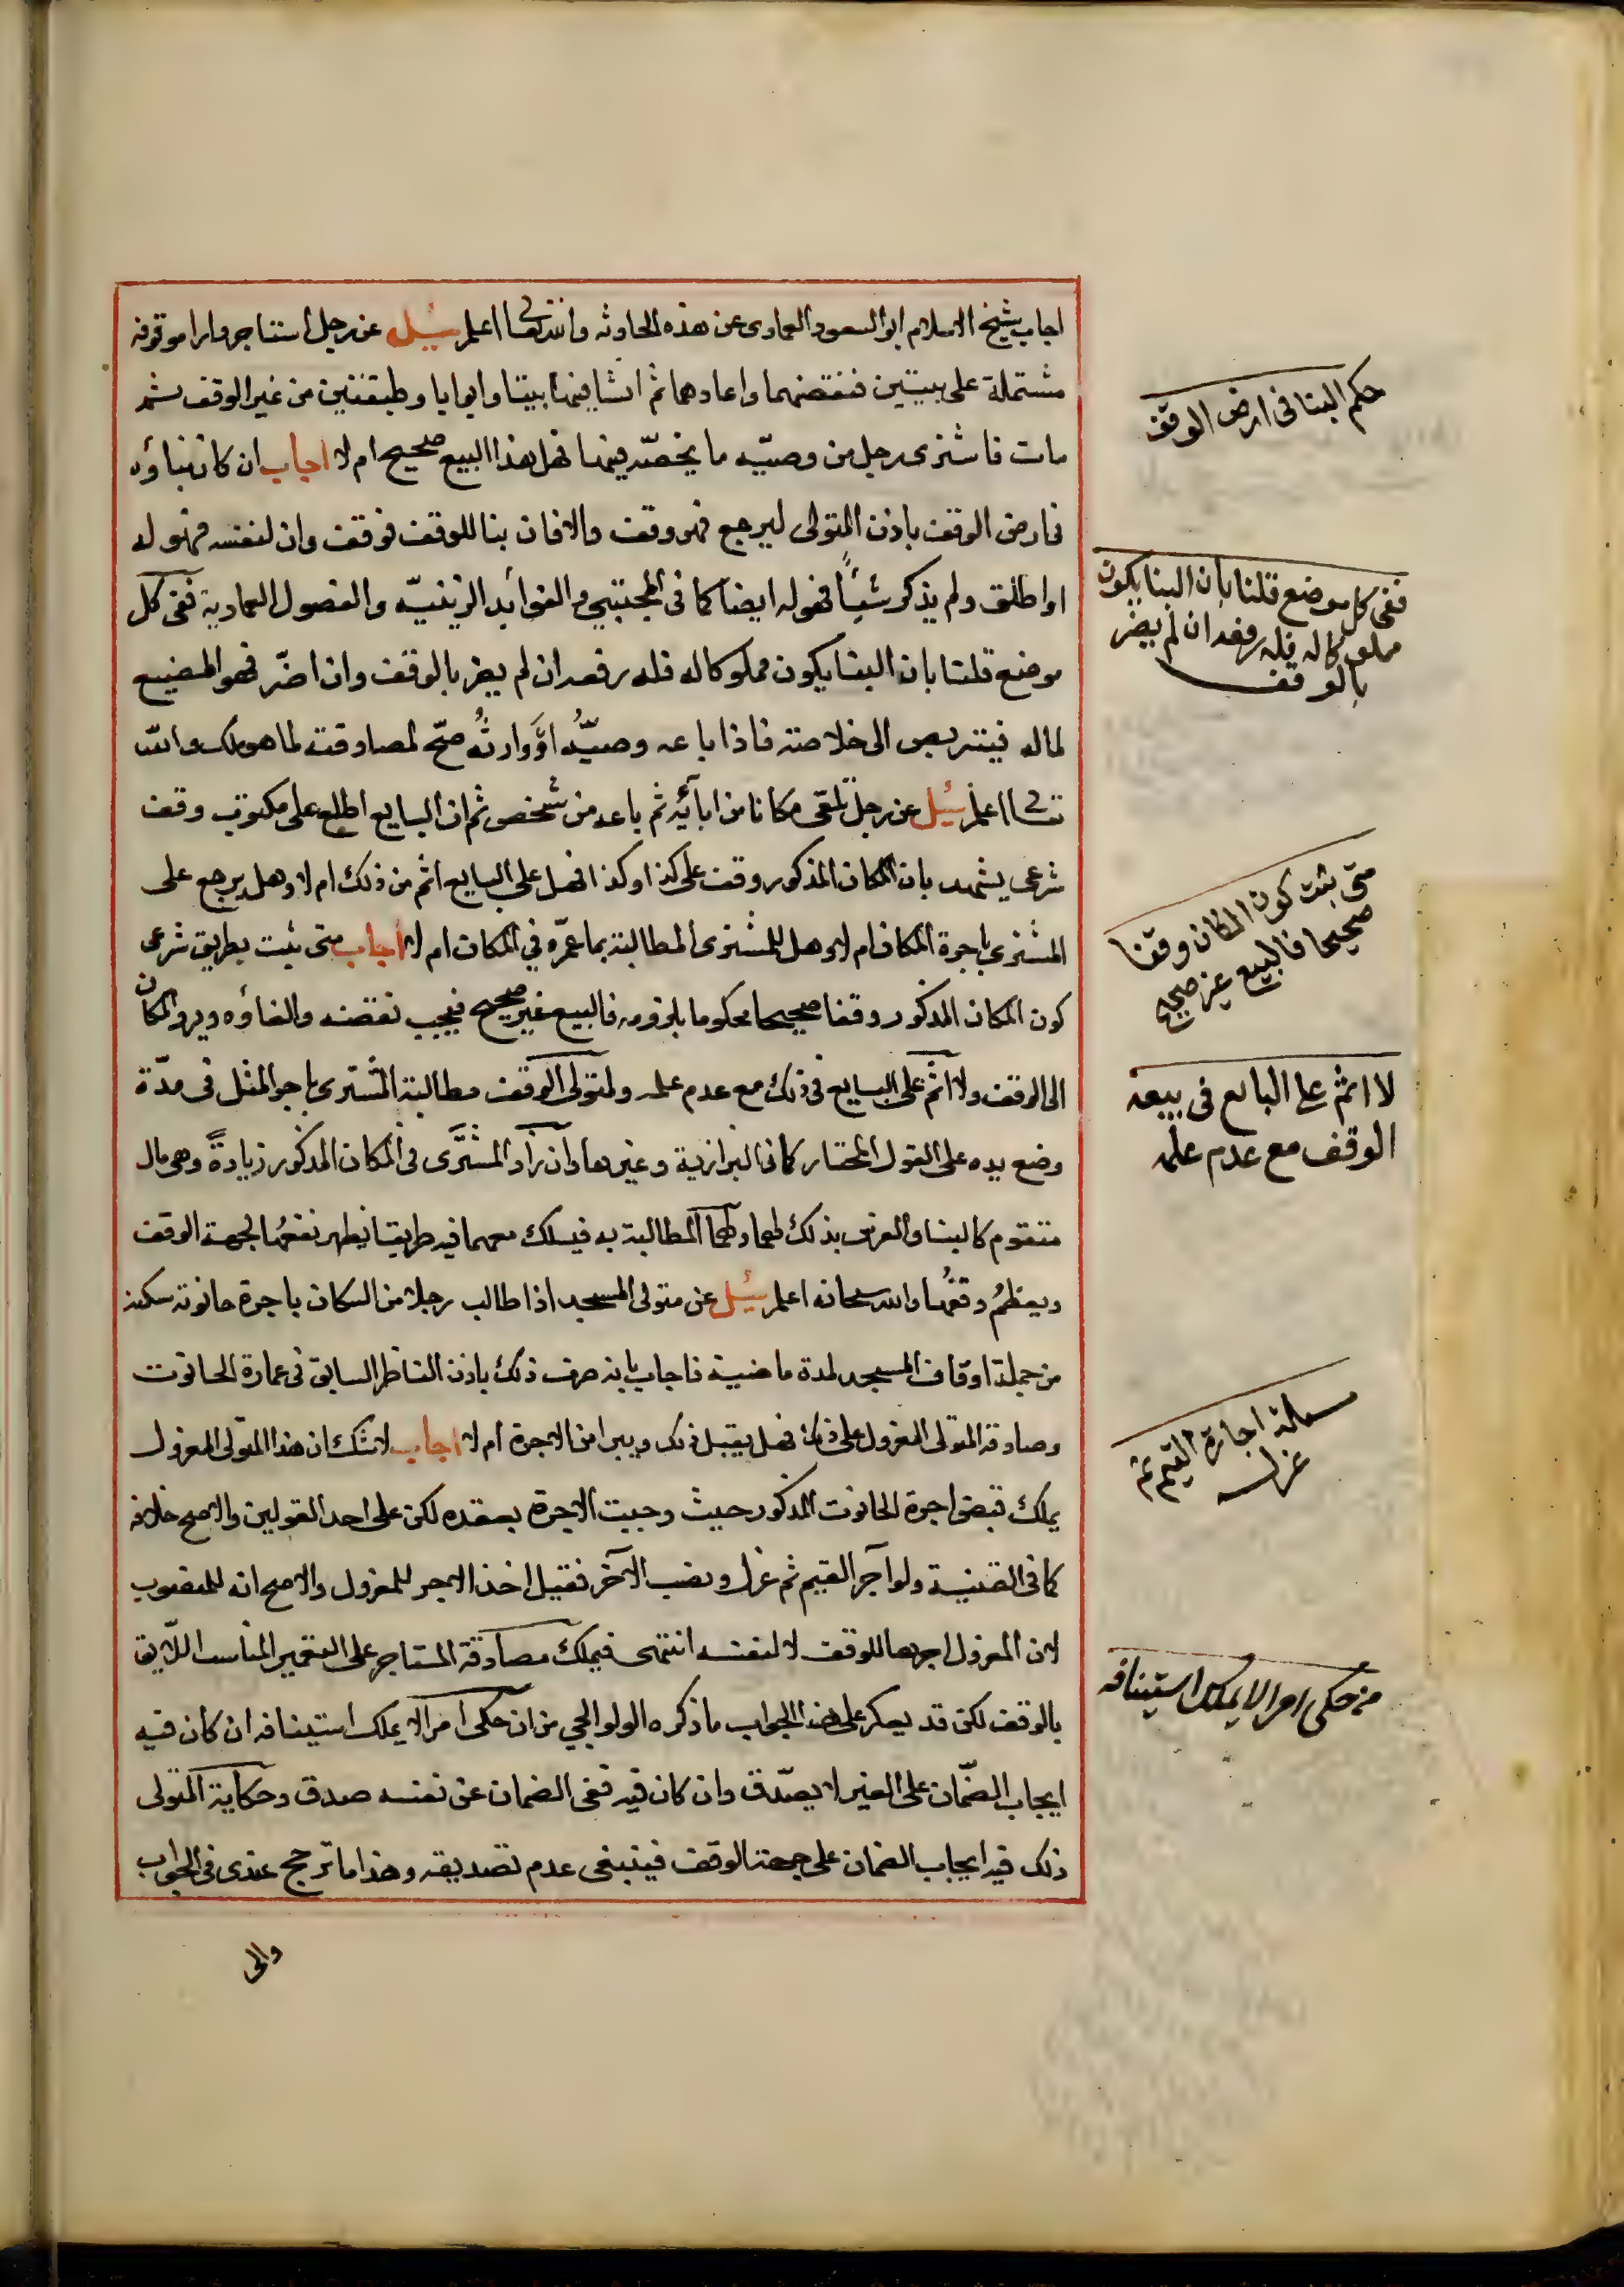 اجاب شيخ الاسلام ابو السعود العمادى عن هذه الحادثه والله تعالى اعلم سئيل عن رجل استاجر دارا موقوفه
مشتملة على بيتين فنقضهما واعادهما ثم انشا فيها بيتا وابوابا وطبقتين من غير الوقف ثم
مات فاشترى رجل من وصيّه ما يخصّه فيها فهل هذا البيع صحيح ام لا اجاب ان كان بناؤه
فى ارض الوقف باذن المتولى ليرجع فهو وقف والا فان بنا للوقف فوقف وان لنفسه فهو له
او اطلق ولم يذكر شيئًا فهو له ايضا كما فى المجتبى والفوائد الزينيّه والفصول العمادية ففى كل
موضع قلنا بان البنا يكون مملوكا له فله رفعه ان لم يضر بالوقف وان اضّر فهو المضيع
لماله فيتربص الى خلاصه فاذا باعه وصيّهُ او وارثُه صحّ لمصادقته لما هو ملك والله
تعالى اعلم سُئيل عن رجل تلقى مكانا من ابائِه ثم باعه من شخص ثم ان البايع اطلع على مكتوب وقف
شرعى يشهد بان المكان المذكور وقف على كذا وكذا فهل على البايع اثم من ذلك ام لا وهل يرجع على
المشترى باجرة المكان ام لا وهل للمشترى المطالبة بما عمّره في المكان ام لا اجاب متى ثبت بطريق شرعى
كون المكان المذكور وقفا صحيحا محكوما بلزومه فالبيع غير صحيح فيجب نقضه والغاؤه ويرد المكان
الى الوقف ولا اثم على البايع فى ذلك مع عدم علمه ولمتولى الوقف مطالبة المشترى باجر المثل فى مدّة
وضع يده على القول المختار كما فى البزازية وغيرها وان زاد المشترى فى المكان المذكور زيادةً وهى مال
متقوم كالبنا والغرس بذلك لهما ولهما المطالبة به فيسلك معهما فيه طريقا يظهر نفعُها لجهة الوقف
ويعظمُ وقعُها والله سبحانه اعلم سُئيل عن متولى المسجد اذا طالب رجلا من السكان باجرة حانوت سكنه
من جملة اوقاف المسجد لمدة ماضية فاجاب بانه صرف ذلك باذن الناظر السابق فى عمارة الحانوت
وصادقه المتولى المعزول على ذلك فهل يقبل ذلك ويبرا من الاجرة ام لا اجاب لا شك ان هذا المتولى المعزول
يملك قبض اجرة الحانوت المذكور حيث وجبت الاجرة بعقده لكن على احد القولين والاصح خلافه
كما فى القنية ولو آجر القيم ثم عزل ونصب الآخر فقيل اخذ الاجر للمعزول والاصح انه للمنصوب
لان المعزول اجرها للوقف لا لنفسه انتهى فيملك مصادقة المستاجر على التعمير المناسب اللايق
بالوقف لكن قد يعكر على هذا الجواب ما ذكره الولوالجي من ان حكى امرا لا يملك استينافه ان كان فيه
ايجاب الضمان على الغير لا يصدّق وان كان فيه نفى الضمان عن نفسه صدق وحكاية المتولى
ذلك فيه ايجاب الضمان على جهة الوقف فينبغى عدم تصديقه وهذا ما ترجح عندى فى الجواب
والى
حكم البنا فى ارض الوقف
ففى كل موضع قلنا بان البنا يكون
مملوكا له فله رفعه ان لم يضر
بالوقف
متى ثبت كون المكان وقفا
صحيحا فالبيع غير صحيح
لا اثم على البايع فى بيعه
الوقف مع عدم علمه
مسالة اجازة القيم ثم
عزله
من حكى امرا لا يملك استينافه